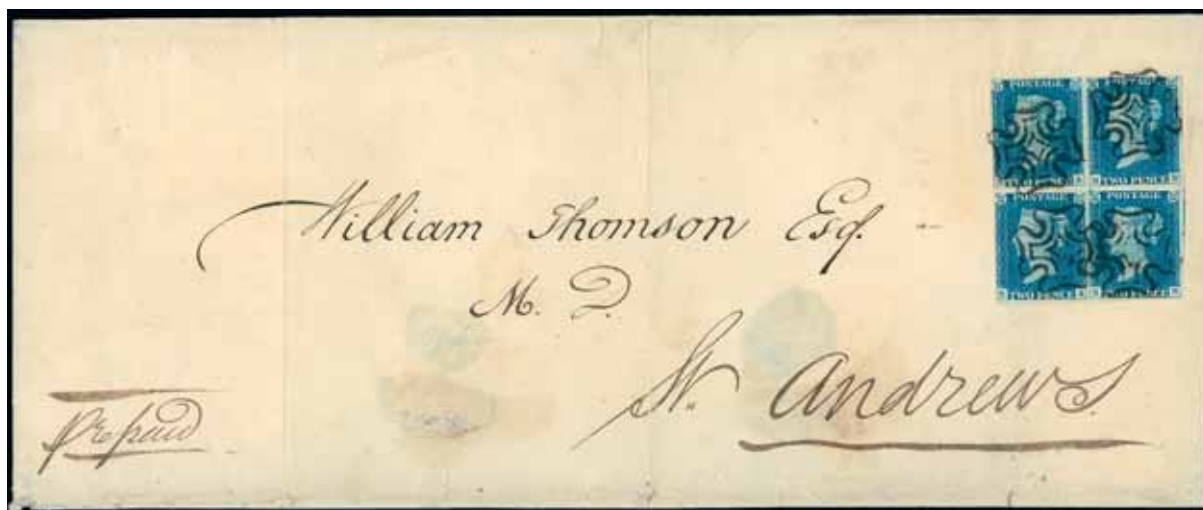 POSTAGE POSTAGE
TWO PENCE TWO PENCE
POSTAGE POSTAGE
TWO PENCE TWO PENCE
William Thomson Esq.
M. D.
St. Andrews.
prepaid